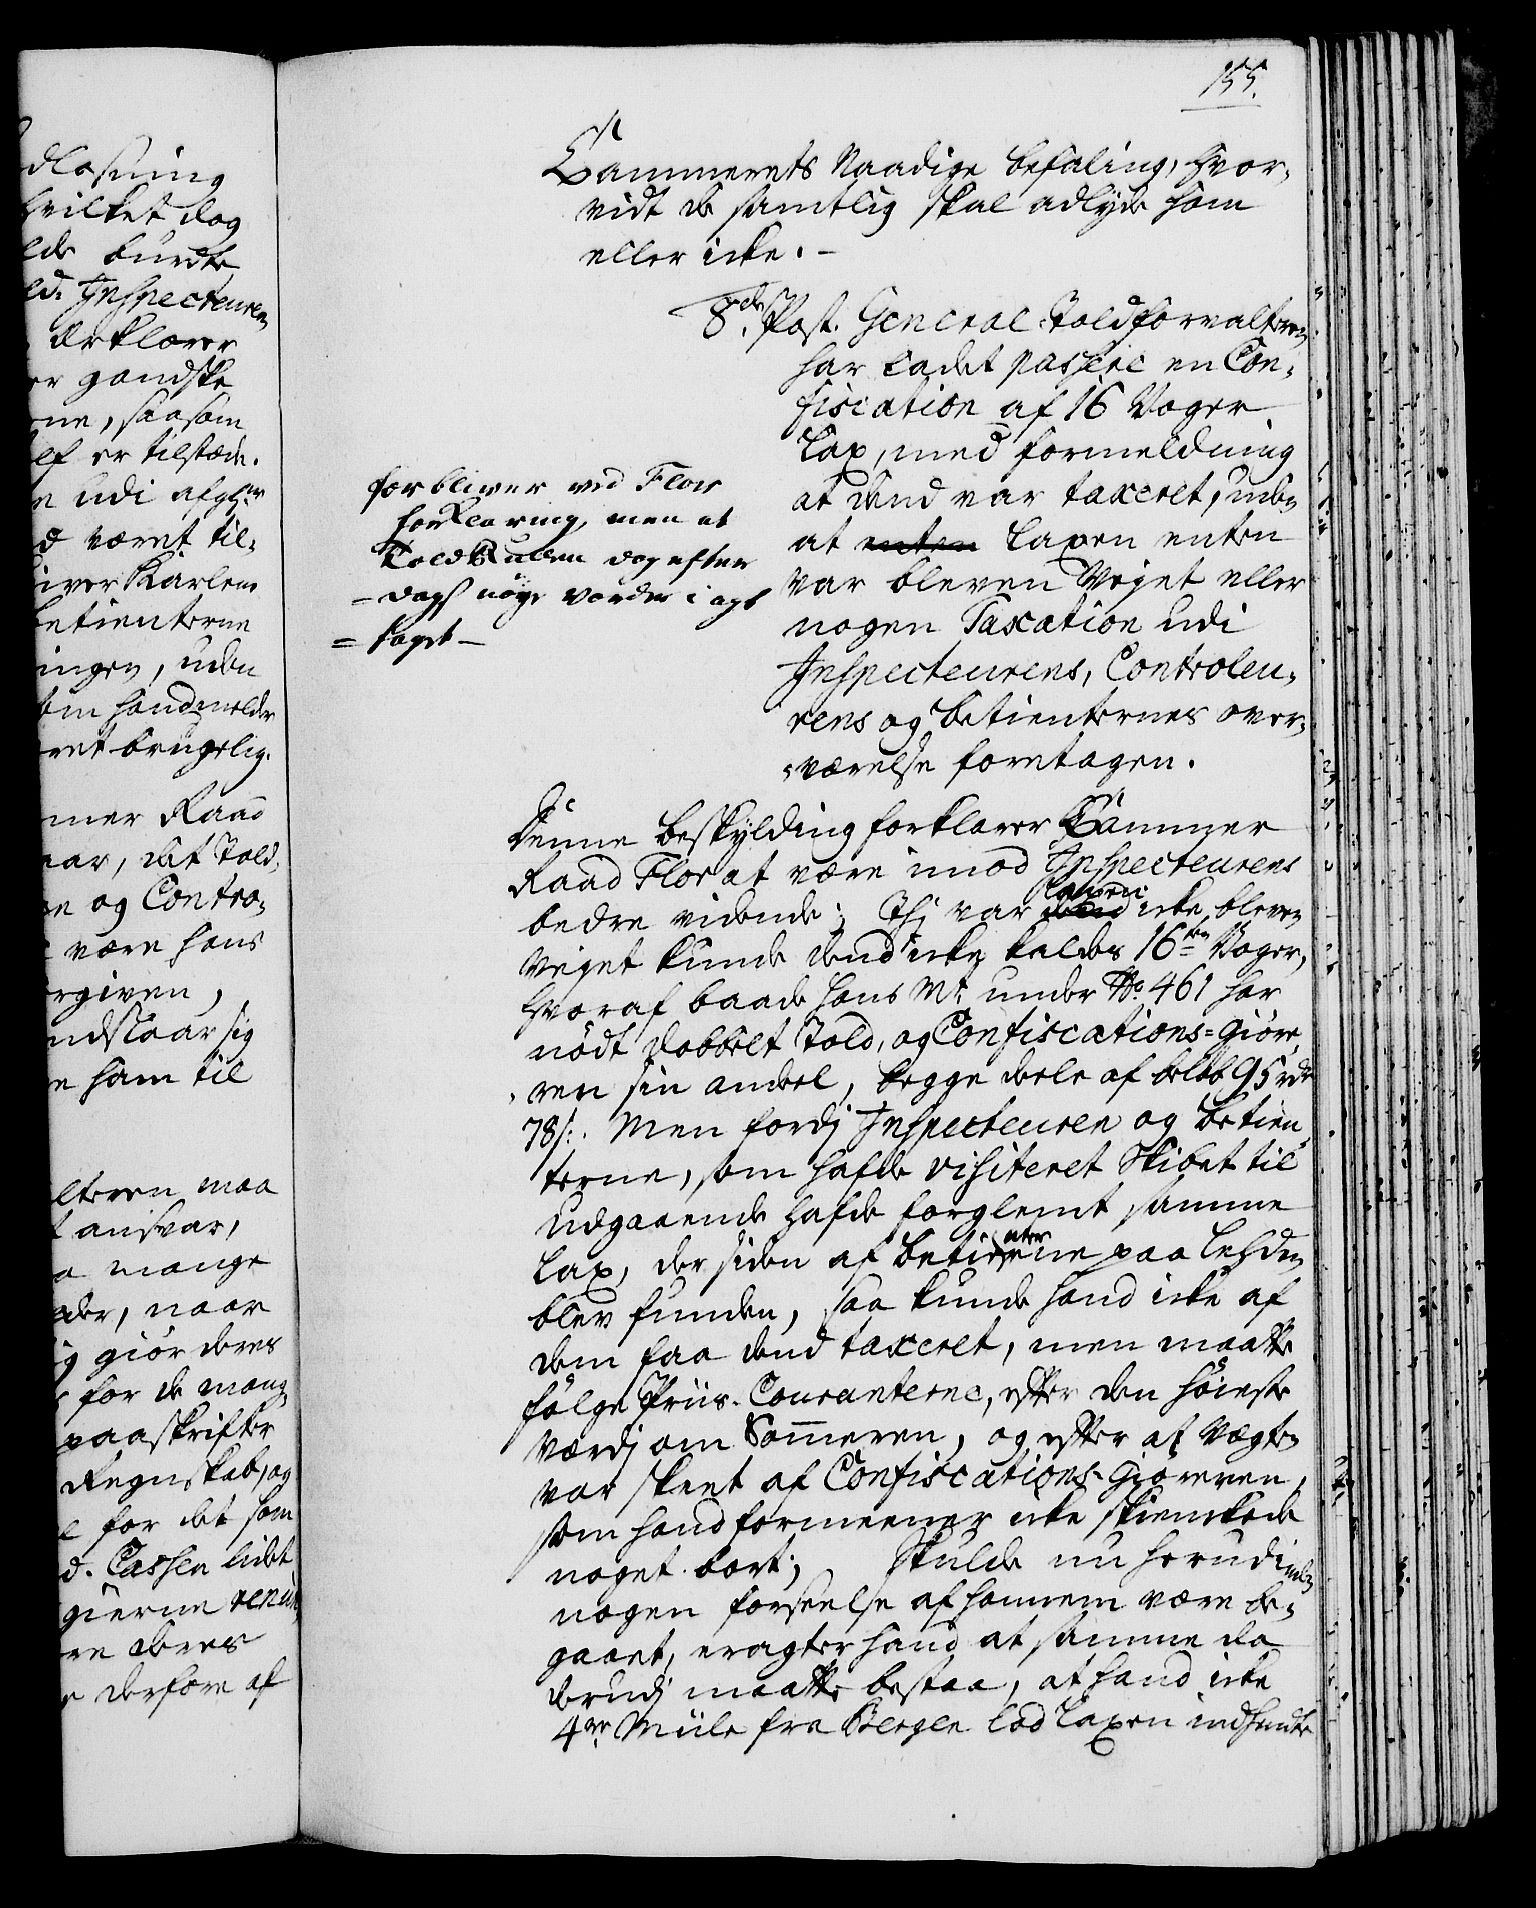 155.
dløsning
hvilket dog
lde burde
ld. Inspecteuren
deklarer
er gandske
ne, saasom
elf er tilstæde.
e udi afghr
d været til-
iver Karlene
betienterne
ingen, uden
om hand melder
ret brugelig.
mer Raad
aar, det Told-
ne og Contro-
være hans
rgiven,
ndstaar sig
e ham til
lteren maa
t ansvar,
a mange
der, naar
ig giør deres
for de mang
paaskrifter
Regnskab, og
e for det som
d. Cassen lidet
gierne
re deres
e derfore af
Cammerets Naadige befaling, hvor-
vidt de samtlig skal adlyde ham
eller icke. -
8de Post. General-Toldforvalteren
har ladet passere en Con-
fiscation af 16 Voger
Lax, med formeldning
at dend var taxeret, uden
at enten Laxen enten
var bleven Veyet eller
nogen Taxation udi
Inspecteurens, Controleu-
rens og betienternes over-
-værelse foretagen.
forbliver ved Flors
forKlaring, men at
ToldRullen dog efter
-dags nøye vorder i agt
= taget -
Denne beskylding forklarer Cammer
Raad Flor at være imod Inspecteurens
bedre vidende; Thj var dend Laxen icke bleven
veyet kunde dend icke kaldes 16ten Voger,
hvoraf baade hans Mt. under No. 461 har
nødt dobbelt Told, og Confiscations=Giøre-
-ren sin andeel, begge deele af beløb 95 rdr
78 s:. Men fordj Inspecteuren og betien-
terne, som hafde visiteret Skibet til
udgaaende hafde forglemt samme
Lax, der siden af betienterne paa
blev funden, saa kunde hand icke af
dem faa dend taxeret, men maatte
følge Priis-Couranterne, efter den høieste
værdj om Sommeren, og efter at Vægten
var skeet af Confiscations-Giøreren,
som hand formeener icke skienckede
noget bort; Skulde nu herudinden
nogen forseelse af hannem være be-
gaaet, eragter hand at samme da
derudj maatte bestaa, at hand icke
4re Miile fra Bergen lod Laxen indhendte